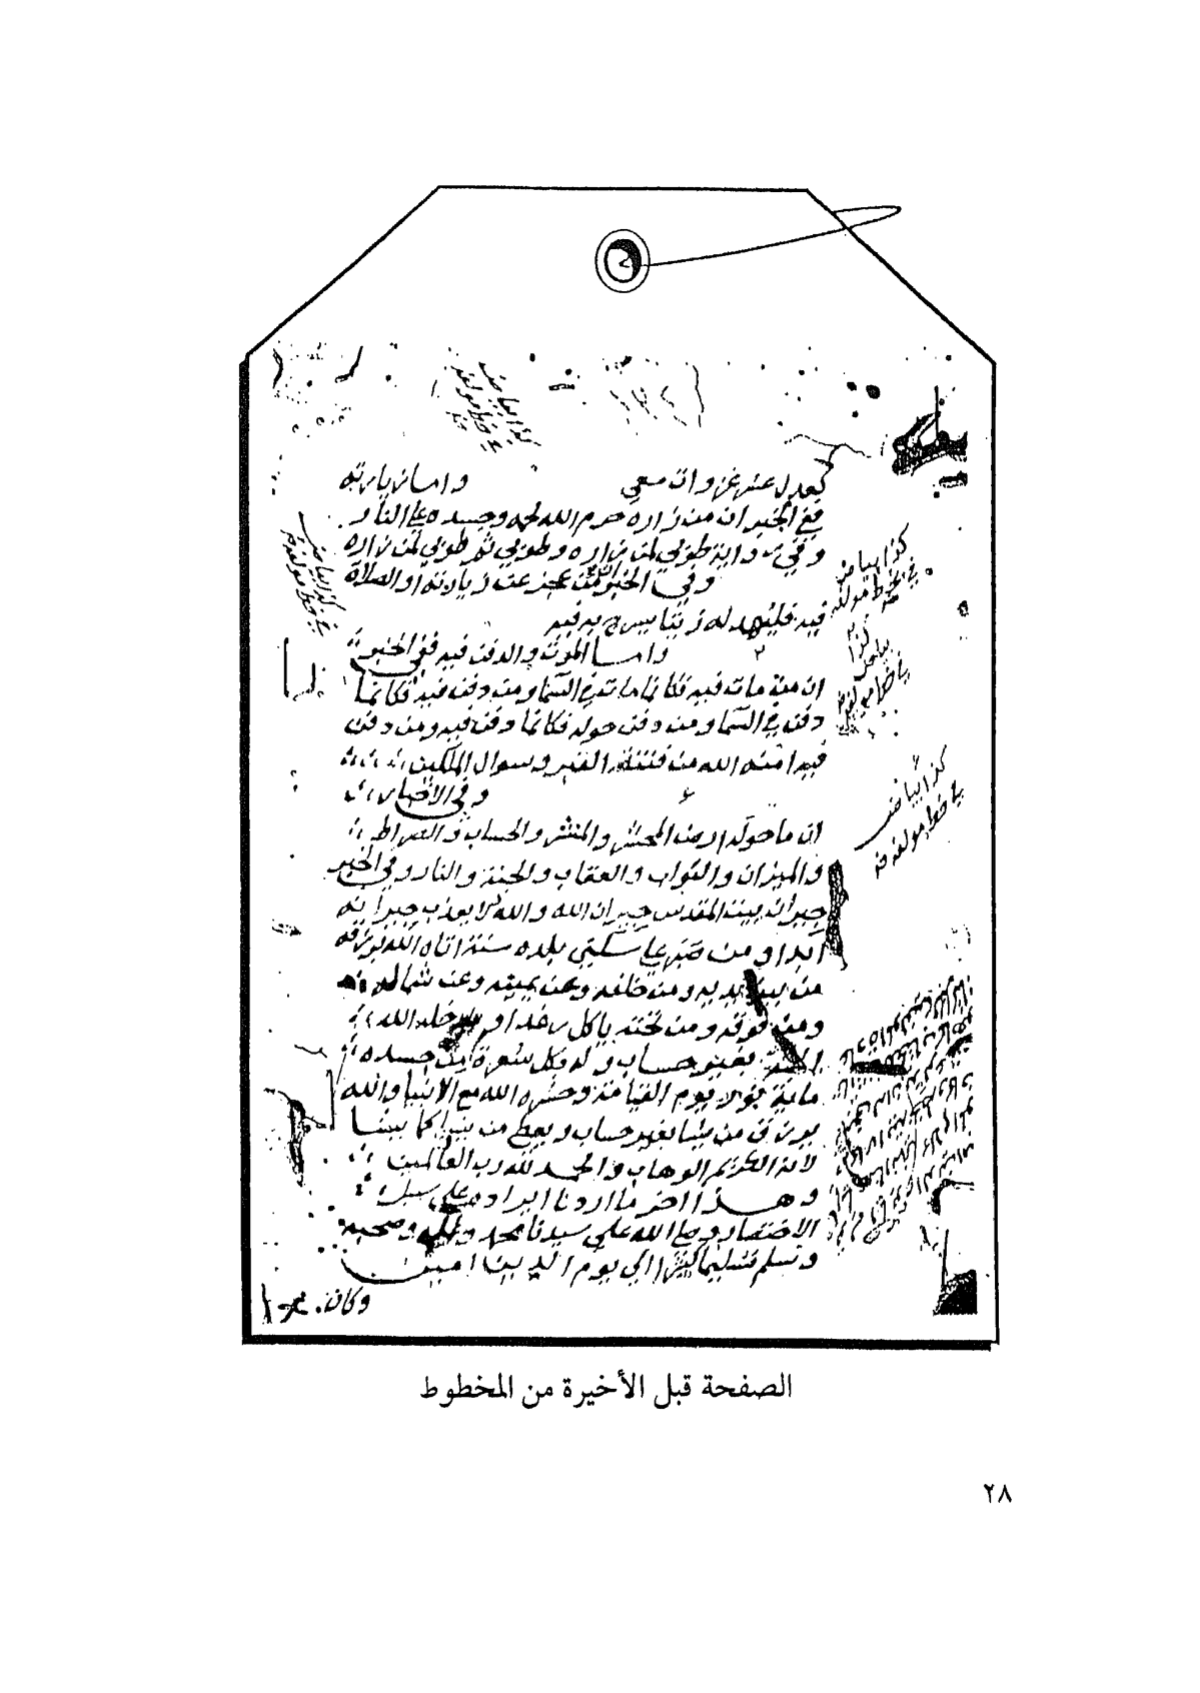 كذا بياض
في خط مولفه
يعدل عشر غزوات معي واما زيارته
ففي الخبر ان من زاره حرم الله لحمه وجسده على النار
وفي رواية طوبي لمن زاره وطوبي ثم طوبي لمن زاره
وفي الخبر من عجز عن زيارته او الصلاة
فيه فليهد له زيتا يسرج به فيه
واما الموت والدفن فيه ففي الخبر
ان من مات فيه فكانما مات في السما ومن دفن فيه فكانما
دفن في السما ومن دفن حوله فكانما دفن فيه ومن دفن
فيه امنه الله من فتنة القبر وسوال الملكين
وفي الاخبار
ان ما حوله ارض المحشر والمنشر والحساب والصراط
والميزان والثواب والعقاب والجنة والنار وفي الخبر
جيران بيت المقدس جيران الله والله لا يعذب جيرانه
ابدا ومن صبر علي سكني بلده سنة اتاه الله برزقه
من بين يديه ومن خلفه وعن يمينه وعن شماله
ومن فوقه ومن تحته ياكل رغدا و يدخله الله
الجنة بغير حساب وله بكل شعرة من جسده
ماية نور يوم القيامة وحشره الله مع الانبيا والله
يرزق من يشا بغير حساب ويعطي من يشا كما يشا
لانه الكريم الوهاب والحمد لله رب العالمين
وهذا اخر ما اردنا ايراده علي سبيل
الاختصار وصلى الله علي سيدنا محمد وآله وصحبه
وسلم تسليما كثيرا الي يوم الدين امين
وكان
كذا بياض
في خط مولفه
كذا بياض
في خط مولفه
كذا بياض
في خط مولفه
الصفحة قبل الأخيرة من المخطوط
٢٨